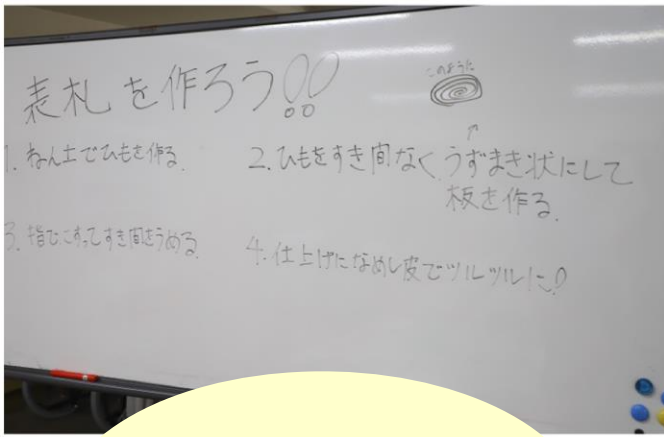 表札を作ろう!!
このように
1. ねん土でひもを作る.
2. ひもをすき間なくうずまき状にして
板を作る.
3. 指でこすってすき間をうめる
4. 仕上げになめし皮でツルツルに!